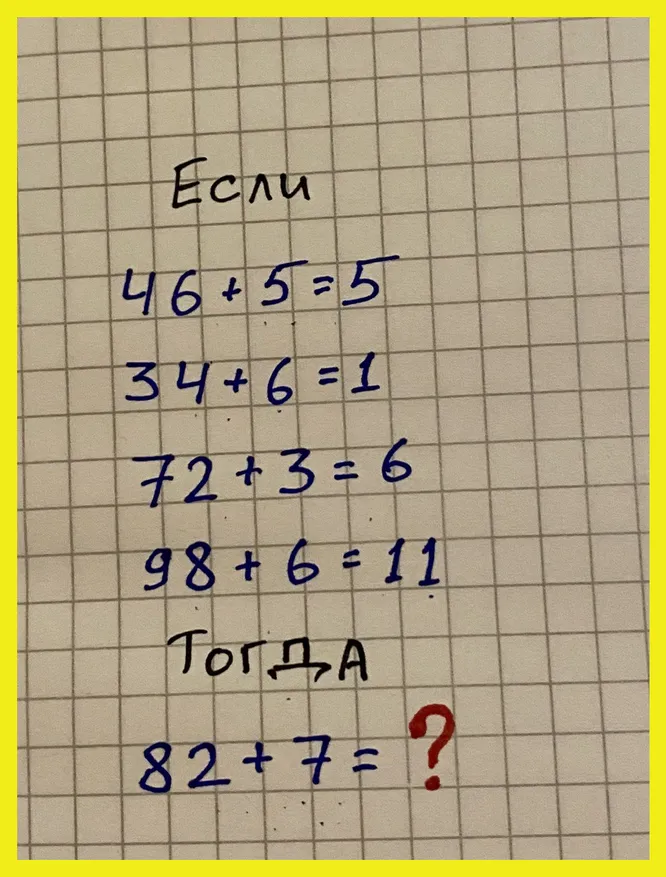 Если
46 + 5 = 5
34 + 6 = 1
72 + 3 = 6
98 + 6 = 11
Тогда
82 + 7 = ?